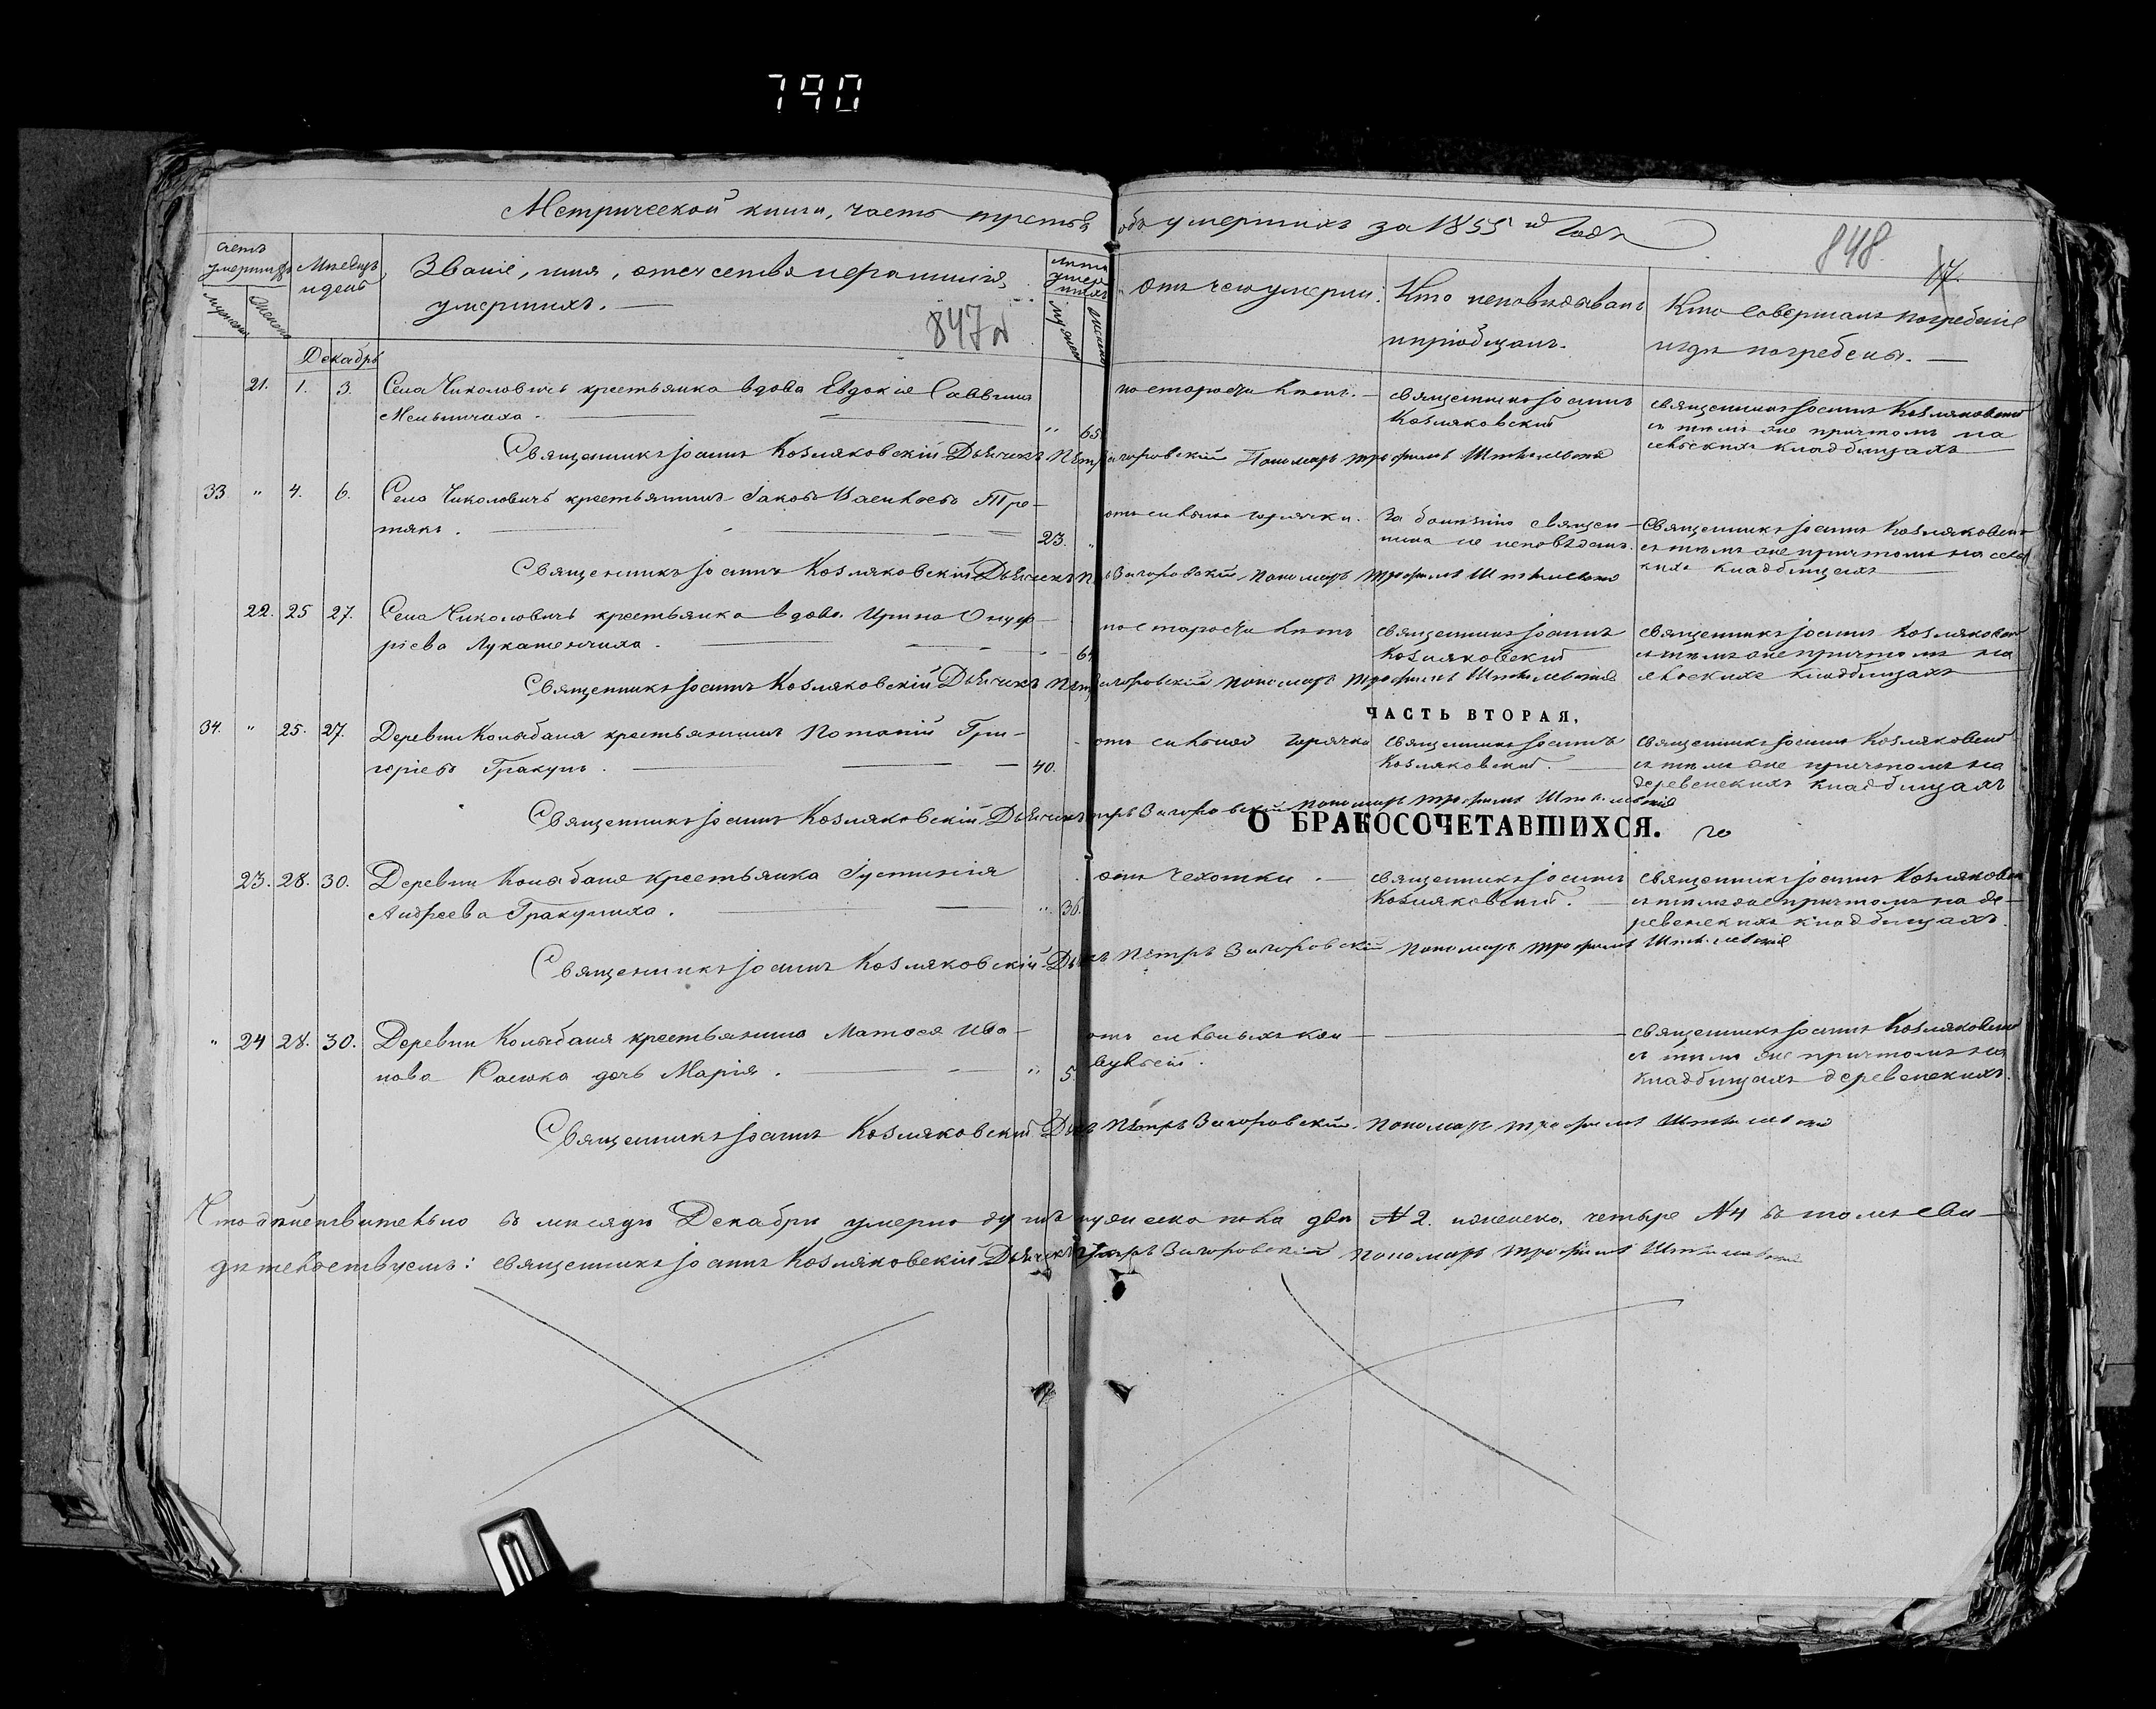 790
Метрической книги, часть третья объ умершихъ за 1855й Годъ
848.
17.
847
Счетъ умершихъ
Мужеска
Женска
Мѣсяцъ и день
Званіе, имя, отечество и фамилія
умершихъ.
Лѣта умершихъ
Мужес
Женска
Отъ чего умерли.
Кто исповѣдывалъ
и пріобщалъ.
Кто совершалъ погребеніе
и гдѣ погребены.
Декабрь
21. 1. 3. Села Чиколовичъ крестьянка вдова Евдокія Саввина
Мельничиха. " 65.
по старости лѣтъ.
священникъ Іоаннъ
Козляковскій
священникъ Іоаннъ Козляковскій
съ тѣмъ же причтомъ на
сельскихъ кладбищахъ
Священникъ Іоаннъ Козляковскій Дьячекъ Петръ Загоровскій Пономарь Трофимъ
33 " 4. 6. Села Чиколовичъ крестьянинъ Іаковъ Васильевъ Тре-
тякъ. 23. "
отъ сильной горячки.
За болѣзнію священ-
ника не исповѣданъ.
Священникъ Іоаннъ Козляковскій
съ тѣмъ же причтомъ на сельс
кихъ кладбищахъ
Священникъ Іоаннъ Козляковскій Дьячекъ Загоровскій Пономарь Трофимъ
22. 25 27. Села Чиколовичъ крестьянка вдова Ирина Онуф-
ріева Лукашенчиха.
по старости лѣтъ
священникъ Іоаннъ
Козляковскій
священникъ Іоаннъ Козляковскій
съ тѣмъ же причтомъ на
сельскихъ кладбищахъ
Священникъ Іоаннъ Козляковскій Дьячекъ Петръ Загоровскій Пономарь Трофимъ
ЧАСТЬ ВТОРАЯ,
34. " 25. 27. Деревни Колыбаня крестьянинъ Потапій Гри-
горіевъ Гракунъ. 40.
отъ сильной горячки
священникъ Іоаннъ
Козляковскій.
священникъ Іоаннъ Козляковскій
съ тѣмъ же причтомъ на
деревенскихъ кладбищахъ
Священникъ Іоаннъ Козляковскій Дьячекъ Петръ Загоровскій Пономарь Трофимъ
О БРАКОСОЧЕТАВШИХСЯ.
23. 28. 30. Деревни Колыбаня крестьянка Іустинія
Андреева Гракуниха. "
отъ чехотки.
священникъ Іоаннъ
Козляковскій.
священникъ Іоаннъ Козляковскій
съ тѣмъ же причтомъ на де-
ревенскихъ кладбищахъ.
Священникъ Іоаннъ Козляковскій Дьячекъ Петръ Загоровскій Пономарь Трофимъ
" 24 28. 30. Деревни Колыбаня крестьянина Матѳея Ива-
нова дочь Марія. " 5.
отъ сильныхъ кон-
вульсій.
священникъ Іоаннъ Козляковскій
съ тѣмъ же причтомъ на
кладбищахъ деревенскихъ.
Священникъ Іоаннъ Козляковскій Дьячекъ Петръ Загоровскій Пономарь Трофимъ
Что дѣйствительно въ мѣсяцѣ Декабрѣ умерло душъ мужеска пола двѣ №2. и женска четыре №4 въ томъ сви-
дѣтельствуемъ: священникъ Іоаннъ Козляковскій Дьячекъ Петръ Загоровскій Пономарь Трофимъ